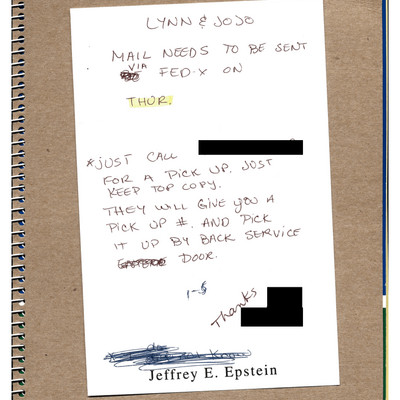 LYNN & JOJO
MAIL NEEDS TO BE SENT
VIA
FED-X ON
THUR.
*JUST CALL
FOR A PICK UP. JUST
KEEP TOP COPY.
THEY WILL GIVE YOU A
PICK UP #. AND PICK
IT UP BY BACK SERVICE
DOOR.
Thanks
Jeffrey E. Epstein